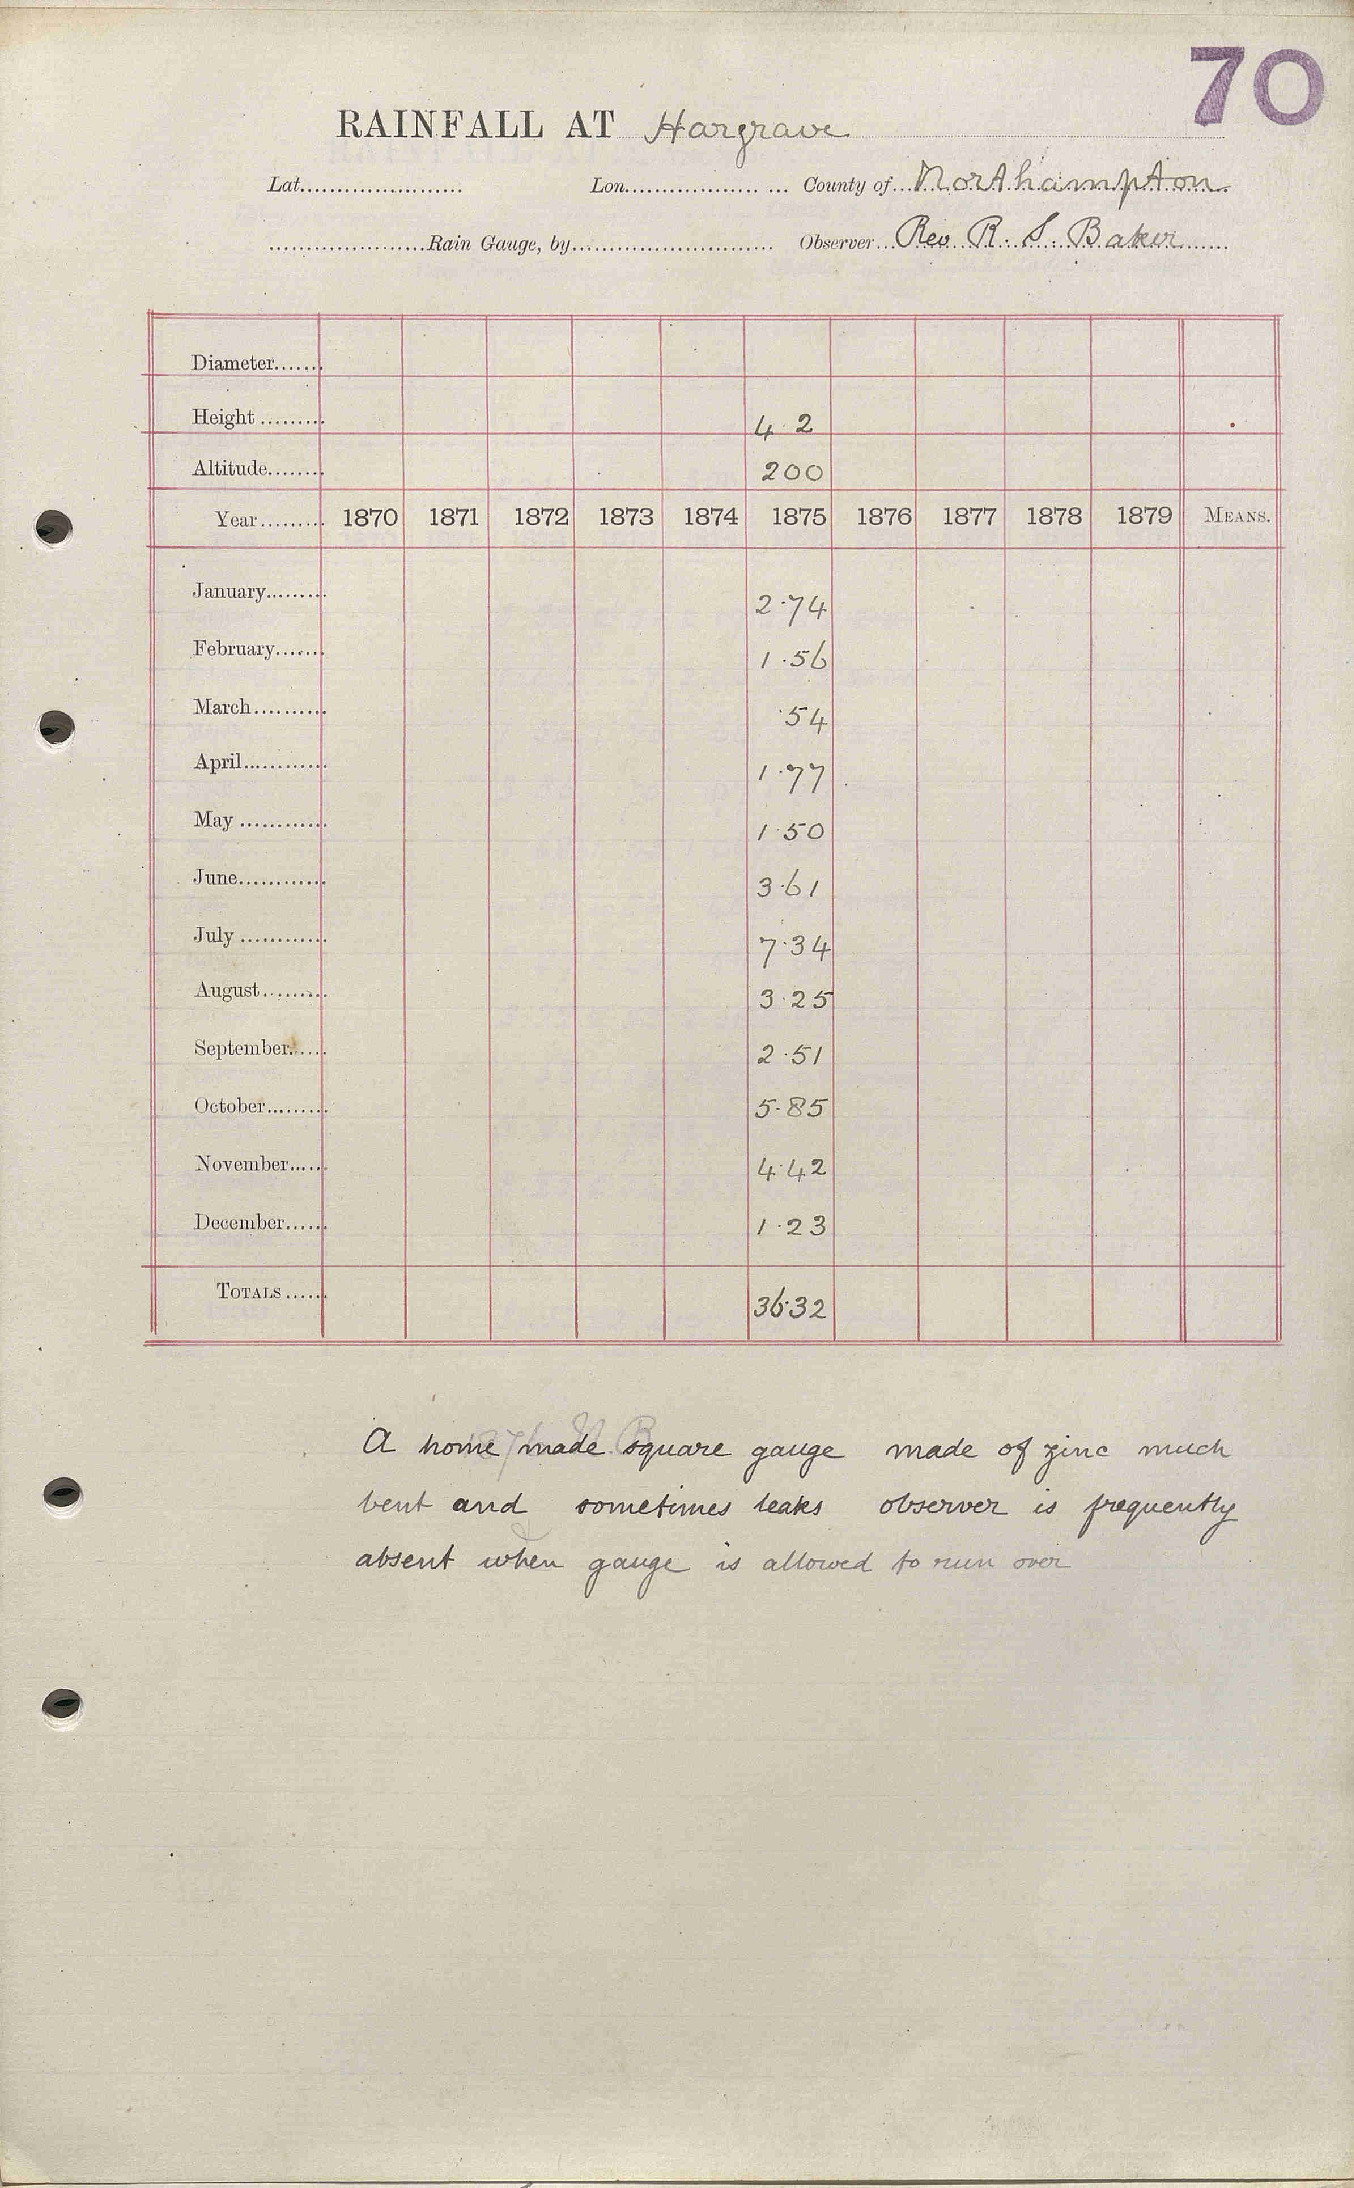 70
RAINFALL AT Hargrave
Lat...................... Lon.................. ... County of...Northampton
.....................Rain Gauge, by........................... Observer...Rev R. S. Baker......
Diameter.......
Height ......... 4 2
Altitude........ 200
Year......... 1870 1871 1872 1873 1874 1875 1876 1877 1878 1879 MEANS.
January......... 2.74
February....... 1.56
March.......... .54
April............ 1.77
May ............ 1.50
June............ 3.61
July ............ 7.34
August......... 3.25
September...... 2.51
October......... 5.85
November...... 4.42
December...... 1.23
TOTALS ...... 36.32
A home made square gauge made of zinc much
bent and sometimes leaks observer is frequently
absent when gauge is allowed to run over